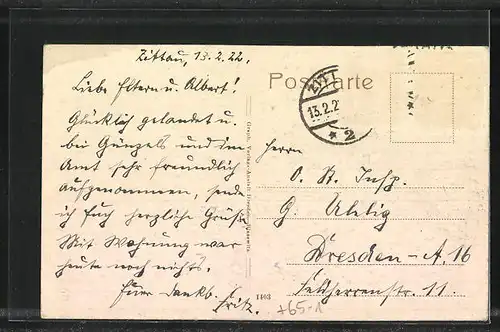 Zittau, 13.2.22.
Liebe Eltern u. Albert!
Glücklich gelandet u.
bei Günzels und im
Amt sehr freundlich
aufgenommen, sende
ich Euch herzliche Grüße.
Mit Wohnung war
heute noch nichts.
Euer dankb. Fritz.
Postkarte
ZITT
13.2.2
* 2
Herrn
O. St. Insp.
G. Uhlig
Dresden-A. 16
Feldherrenstr. 11.
1403
+65-1